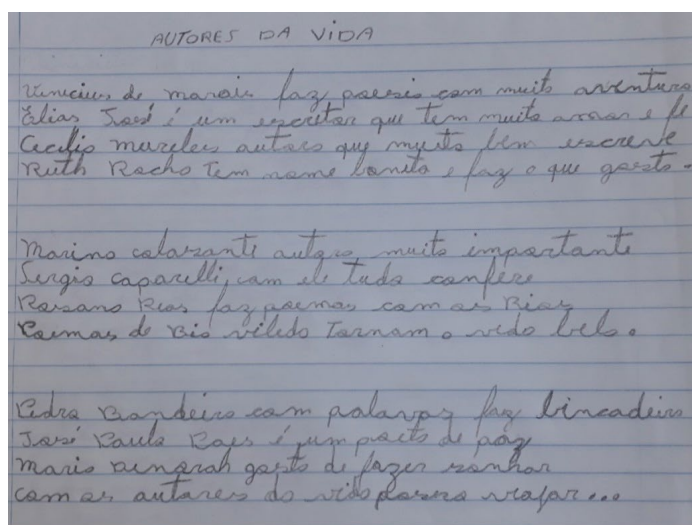 AUTORES DA VIDA
Vinicius de morais faz poesis com muito aventura
Élias José é um escritor que tem muito amor e fé
Cecilia mureles autora que muito bem escreve
Ruth Rocho Tem nome bonito e faz o que gosto.
Marino colasante autora muito importante
Sergio Caparelli, com ele tudo confere
Rosano Rios faz poemas com os Rios
Poemas de Bio viledo Tornam o vido belo.
Pedro Bandeiro com palavaz faz bincadeiro
José Paulo Paes é um poeto de paz
Mario dinorah gosto de fazer sonhar
com os autores do vido posso viajar...